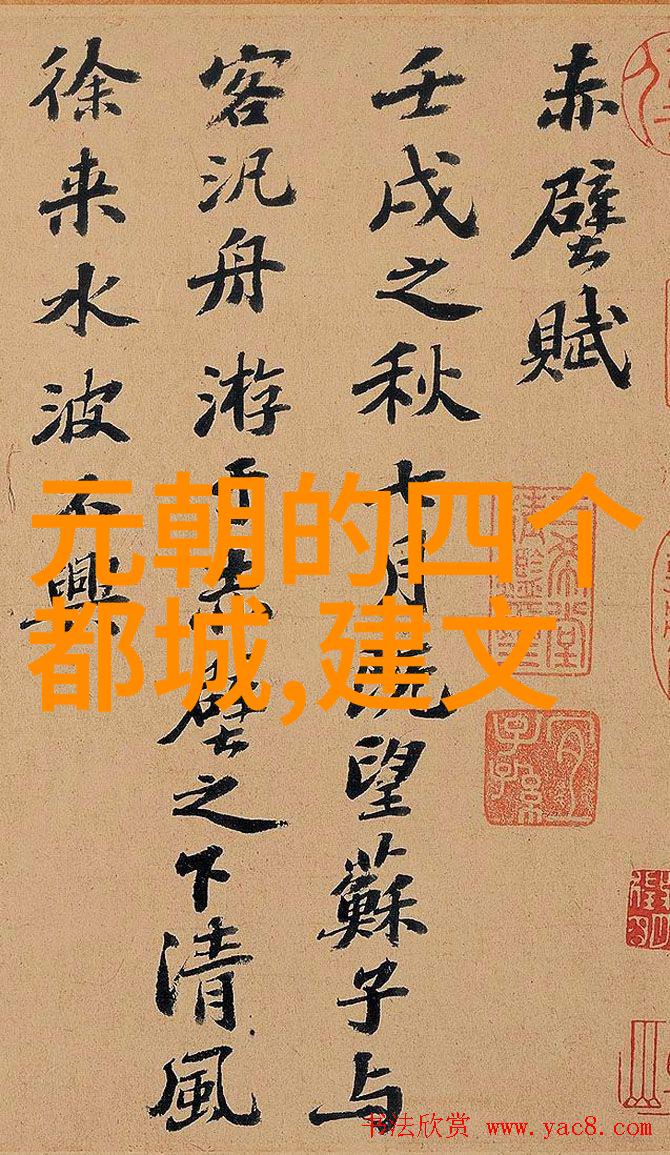 赤壁賦
壬戌之秋七月既望蘇子与
客汎舟游于赤壁之下清風
徐来水波不興
元朝的四个
都城,建文
书法欣赏 www.yac8.com